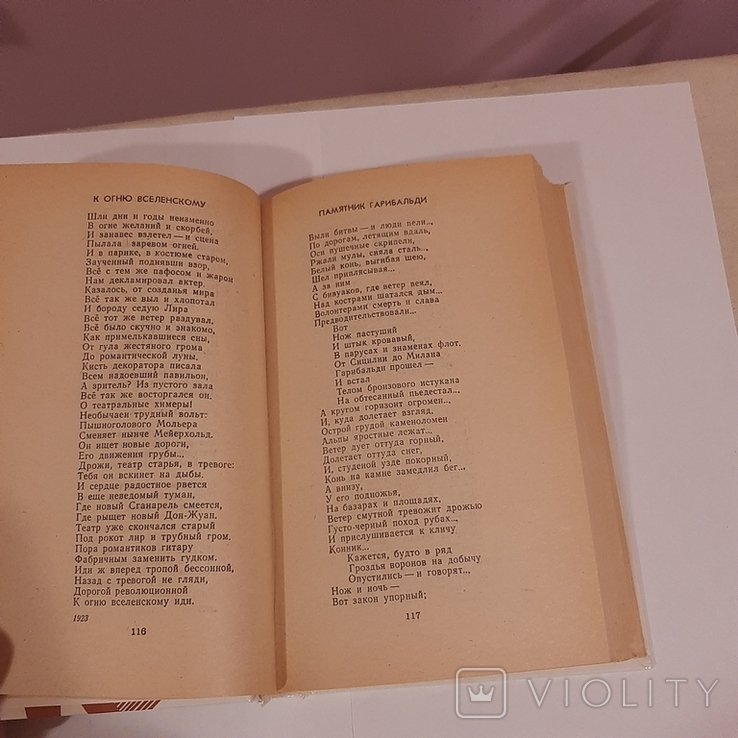 К ОГНЮ ВСЕЛЕНСКОМУ
Шли дни и годы неизменно
В огне желаний и скорбей,
И занавес взлетел — и сцена
Пылала заревом огней.
И в парике, в костюме старом,
Заученный поднявши взор,
Всё с тем же пафосом и жаром
Нам декламировал актер.
Казалось, от созданья мира
Всё так же выл и хлопотал
И бороду седую Лира
Всё тот же ветер раздувал,
Всё было скучно и знакомо,
Как примелькавшиеся сны,
От гула жестяного грома
До романтической луны.
Кисть декоратора писала
Всем надоевший павильон,
А зритель? Из пустого зала
Всё так же восторгался он.
О театральные химеры!
Необычаен трудный вольт:
Пышноголового Мольера
Сменяет нынче Мейерхольд.
Он ищет новые дороги,
Его движения грубы...
Дрожи, театр старья, в тревоге:
Тебя он вскинет на дыбы.
И сердце радостное рвется
В еще неведомый туман,
Где новый Сганарель смеется,
Где рыщет новый Дон-Жуан.
Театр уже скончался старый
Под рокот лир и трубный гром.
Пора романтиков гитару
Фабричным заменить гудком.
Иди ж вперед тропой бессонной,
Назад с тревогой не гляди,
Дорогой революционной
К огню вселенскому иди.
1923
116
ПАМЯТНИК ГАРИБАЛЬДИ
Были битвы — и люди пели...,
По дорогам, летящим вдаль,
Оси пушечные скрипели,
Ржали мулы, сияла сталь...
Белый конь, выгибая шею,
Шел приплясывая...
А за ним
С бивуаков, где ветер веял,
Над кострами шатался дым...
Волонтерами смерть и слава
Предводительствовали...
Вот
Нож пастуший
И штык кровавый,
В парусах и знаменах флот.
От Сицилии до Милана
Гарибальди прошел —
И встал
Телом бронзового истукана
На обтесанный пьедестал...
А кругом горизонт огромен...,
И, куда долетает взгляд,
Острой грудой каменоломен
Альпы яростные лежат...
Ветер дует оттуда горный,
Долетает оттуда снег,
И, студеной узде покорный,
Конь на камне замедлил бег...
А внизу,
У его подножья,
На базарах и площадях,
Ветер смутной тревожит дрожью
Густо-черный поход рубах...,
И прислушивается к кличу
Конник...
Кажется, будто в ряд
Гроздья воронов на добычу
Опустились — и говорят...,
Нож и ночь —
Вот закон упорный;
117
VIOLITY